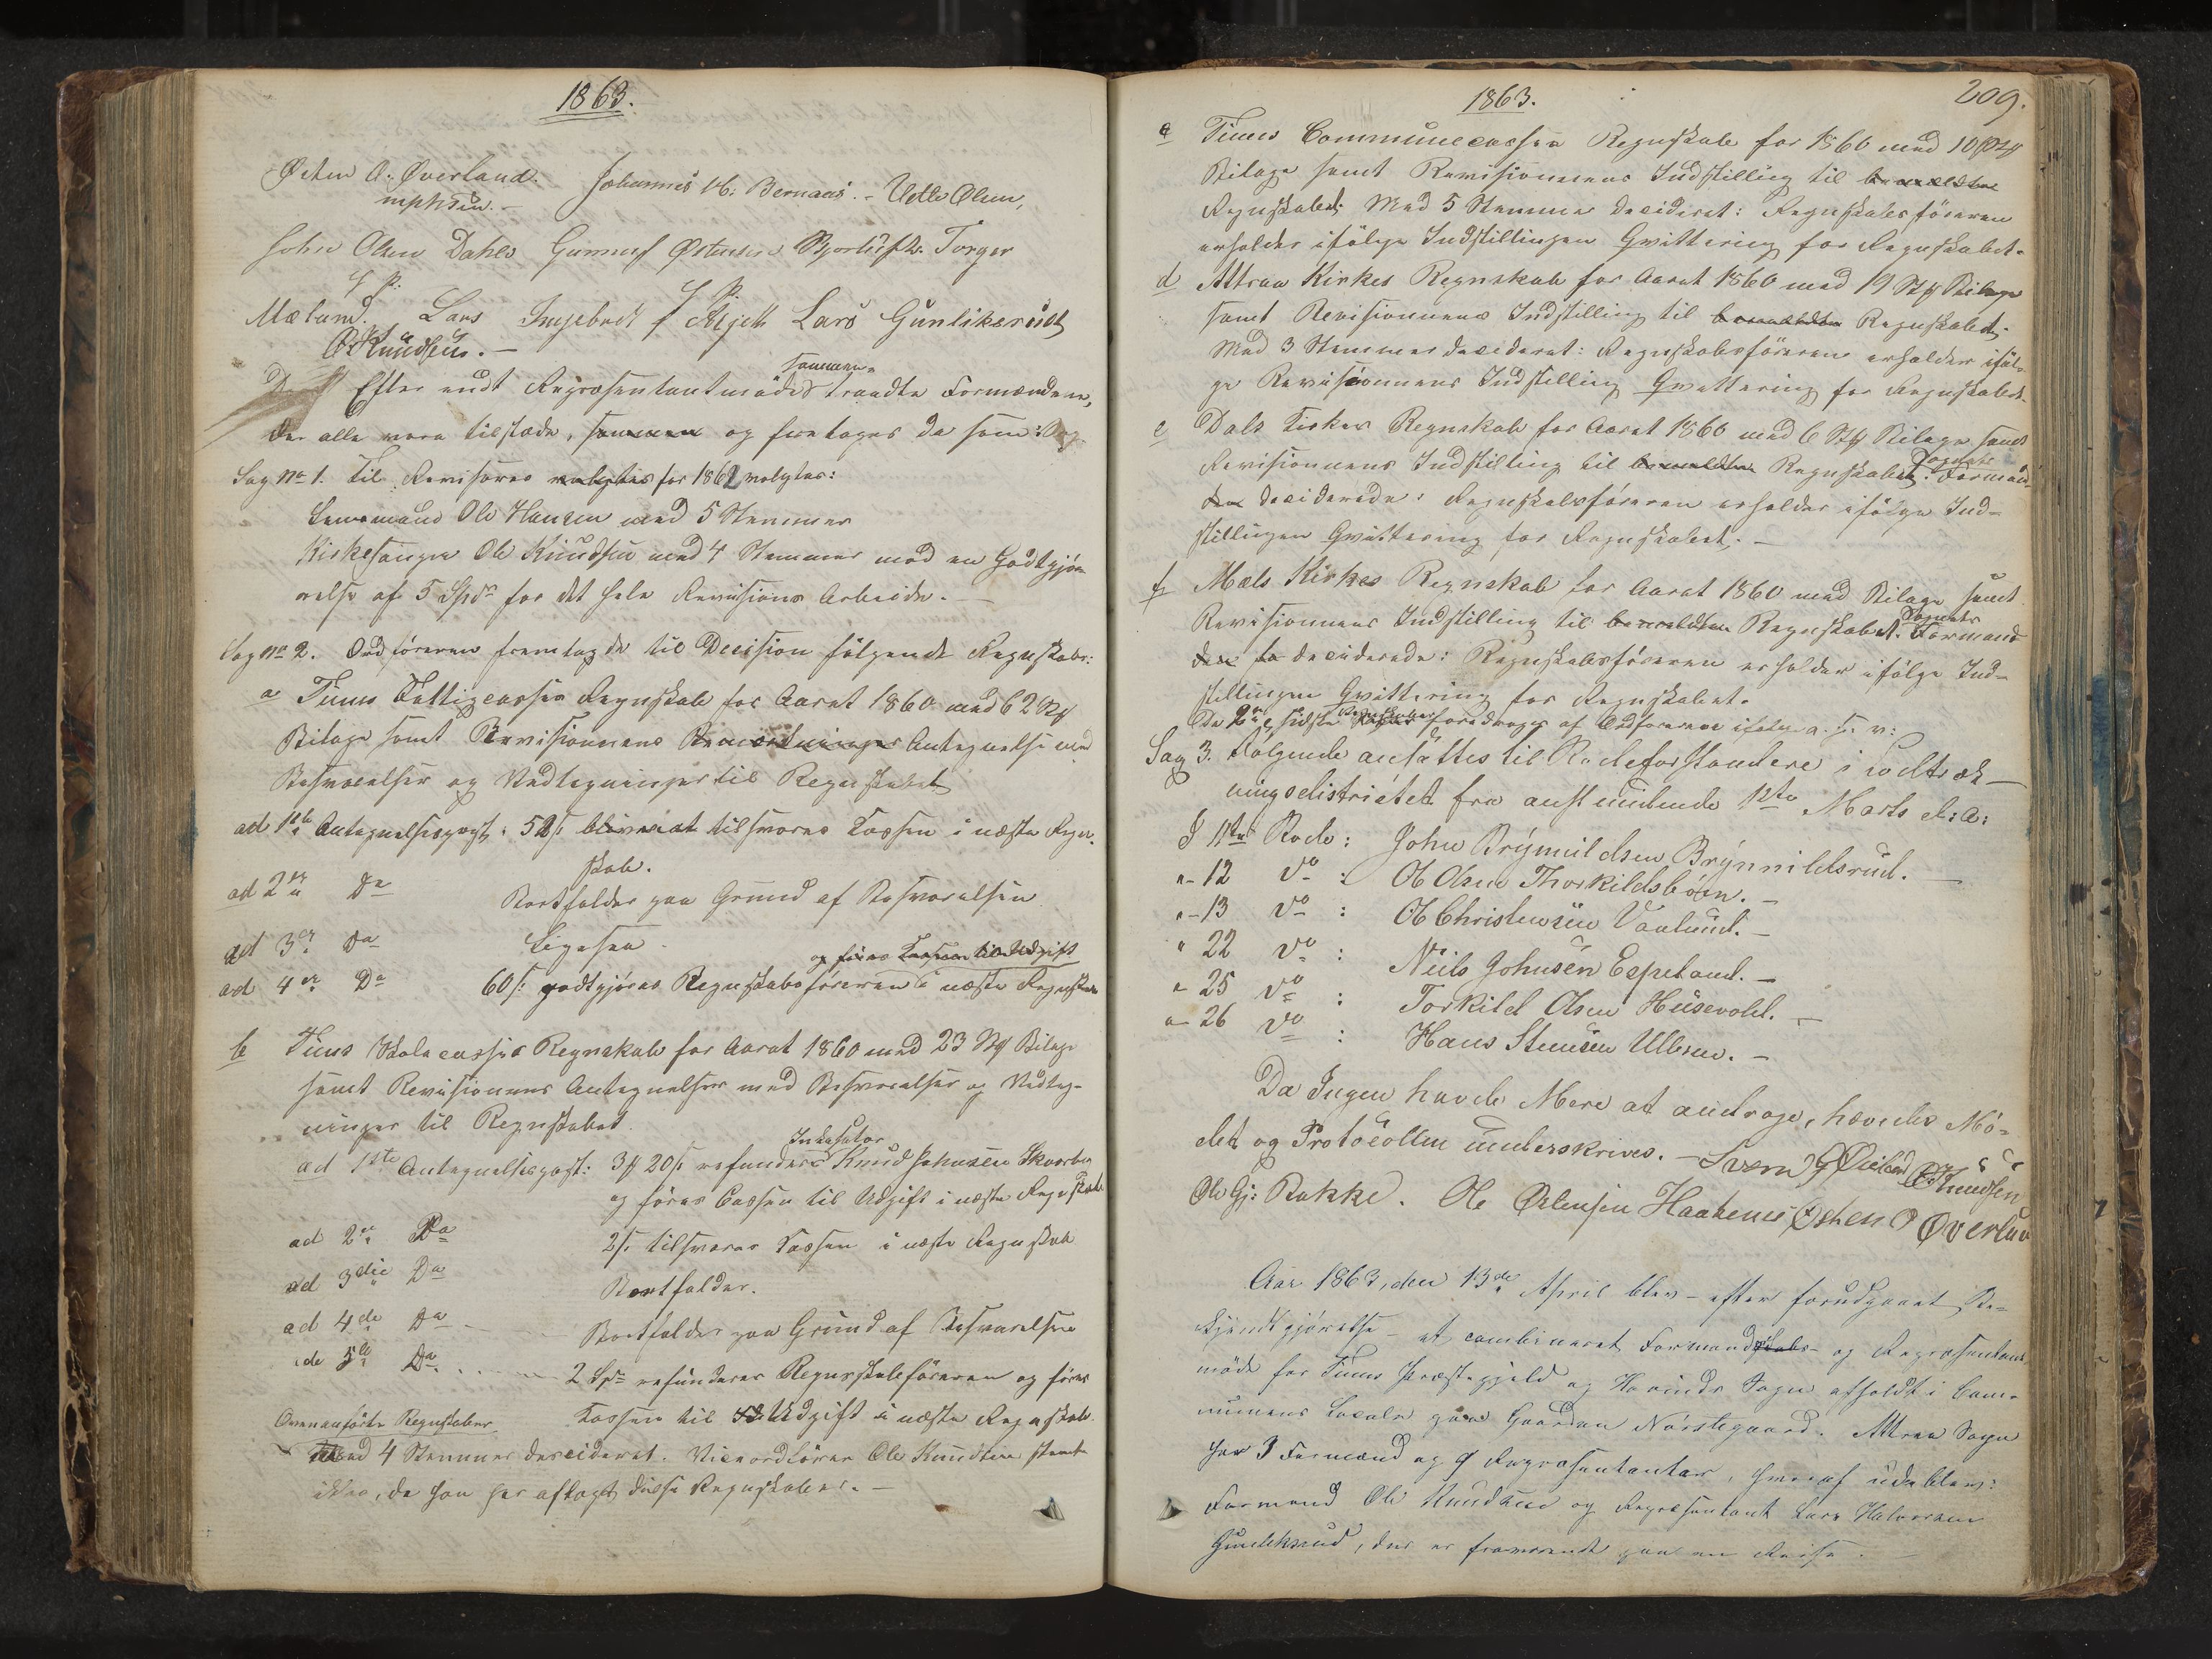 1863.
Østen A. Øverland. Johannes H. Bernaas. - Vetle Olsen,
mphsün.-
John Olsen Dahle Gunnuf Østensen Torger
Mæland. Lars Ingebret Lars Gunliksrud
O. Knudsen. -
sammen
Efter endt Repræsentantmøde traadte Formændene,
der alle vare tilstæde, sammen og foretoges da som:
Sag No 1. Til Revisorer valgtes for 1862 valgtes:
Lensmand Ole Hansen med 5 Stemmer
Kirkesanger Ole Knudsen med 4 Stemmer mod en Godtgjø-
relse af 5 Spd for det hele Revisions Arbeide. -
Sag No 2. Ordføreren fremlagde til Decision følgende Regnskaber:
a Tinns Fattigcasses Regnskab for Aaret 1860 med 62 St
Bilage samt Revisionens Bemærkninger Antegnelse med
Besvarelser og Vedtegninger til Regnskabet
ad 1ste Antegnelsespost: 52 s. tilsvares Cassen i næste Regn-
skab.
ad 2den Do Bortfalder paa Grund af Besvarelsen
ad 3die Do Ligesaa.
og føres Cassen til Udgift
ad 4de Do 60 s. godtgjøres Regnskabsføreren i næste Regnskab
b Tinns Skolecasses Regnskab for Aaret 1860 med 23 St Bilage
samt Revisionens Antegnelser med Besvarelser og Vedteg-
ninger til Regnskabet
Indkasator
ad 1ste Antegnelsespost: 3 20 s. refunderes Knud Johnsen Skaarboe
og føres Cassen til Udgift i næste Regnskab
ad 2 Do 2 s. tilsvares Cassen i næste Regnskab
ad 3die Do Bortfalder.
ad 4de Do Bortfalder paa Grund af Besvarelsen
ad 5te Do 2 Spd refunderes Regnskabsføreren og føres
Cassen til Udgift i næste Regnskab.
Ovenanførte Regnskaber
med 4 Stemmer decideret. Viceordfører Ole Knudsen stemte
ikke, da han har aflagt disse Regnskaber. -
1863. 209.
c Tinns Communecasses Regnskab for 1860 med 10 St
Bilage samt Revisionens Indstilling til
Regnskabet. Med 5 Stemmer decideret: Regnskabsføreren
erholder ifølge Indstillingen Qvittering for Regnskabet.
d Attraa Kirkes Regnskab for Aaret 1860 med 19 St Bilage
samt Revisionens Indstilling til Regnskabet.
Med 3 Stemmer decideret: Regnskabsføreren erholder iføl-
ge Revisionens Indstilling Qvittering for Regnskabet.
e Dals Kirkes Regnskab for Aaret 1860 med 6 St Bilage samt
Revisionens Indstilling til Regnskabet. Sognets Formænd
den deciderede: Regnskabsføreren erholder ifølge Ind-
stillingen Qvittering for Regnskabet. -
f Mæls Kirkes Regnskab for Aaret 1860 med Bilage samt
Revisionens Indstilling til Regnskabet. Sognets Formand
deciderede: Regnskabsføreren erholder ifølge Ind-
stillingen Qvittering for Regnskabet.
De 2de sidste Regnskaber foredroges af Ordføreren ifølge
Sag 3. Følgende ansattes til Rodeforstandere i Indtræk-
ningsdistrictet fra anstundende 1ste Marts d: A:
I 11te Rode: John Brynnildsen Brynnildsrud. -
" 12 Do : Ole Olsen Thorkildsbøen. -
" 13 Do : Ole Christensen Vaalund. -
" 22 Do : Neils Johnsen Espeland. -
" 25 Do : Torkild Olsen Husevold. -
" 26 Do : Hans Steensen Ullern. -
Da Ingen havde Mere at andrage, hævedes Mø-
det og Protocollen underskrives. - Svend G O Knudsen
Ole Gj: Bakke. Ole Østensen Haakenes Østen A Øverland
Aar 1863, den 13de April blev - efter forudgaaet Be-
kjendtgjørelse - et combineret Formandskabs- og Repræsentant-
møde for Tinns Præstegjeld og Hovinds Sogn afholdt i Com-
munens Locale paa Gaarden Nørstegaard. Attraa Sogn
har 3 Formænd og 9 Repræsentanter, hvoraf udeblev:
Formand Ole Knudsen og Repræsentant Lars Halvorsen
Gunleksrud, der er fraværende paa en Reise. -